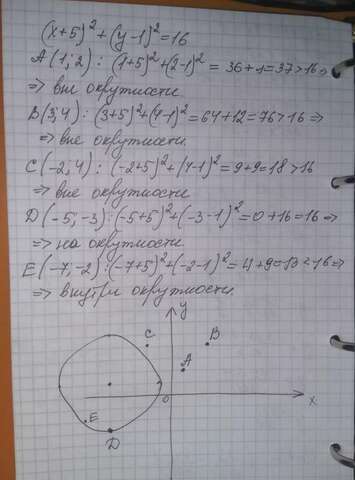 (x+5)²+(y-1)²=16
A(1;2): (1+5)²+(2-1)² = 36+1=37>16⇒
⇒ вне окружности
B(3;4): (3+5)²+(4-1)²=64+12=76>16 ⇒
⇒ вне окружности.
C(-2;4): (-2+5)²+(4-1)²=9+9=18>16
⇒ вне окружности
D(-5;-3):(-5+5)²+(-3-1)²=0+16=16⇒
⇒ на окружности
E(-7;-2):(-7+5)²+(-2-1)²=4+9=13<16⇒
⇒ внутри окружности.
y
C
B
A
O
x
E
D